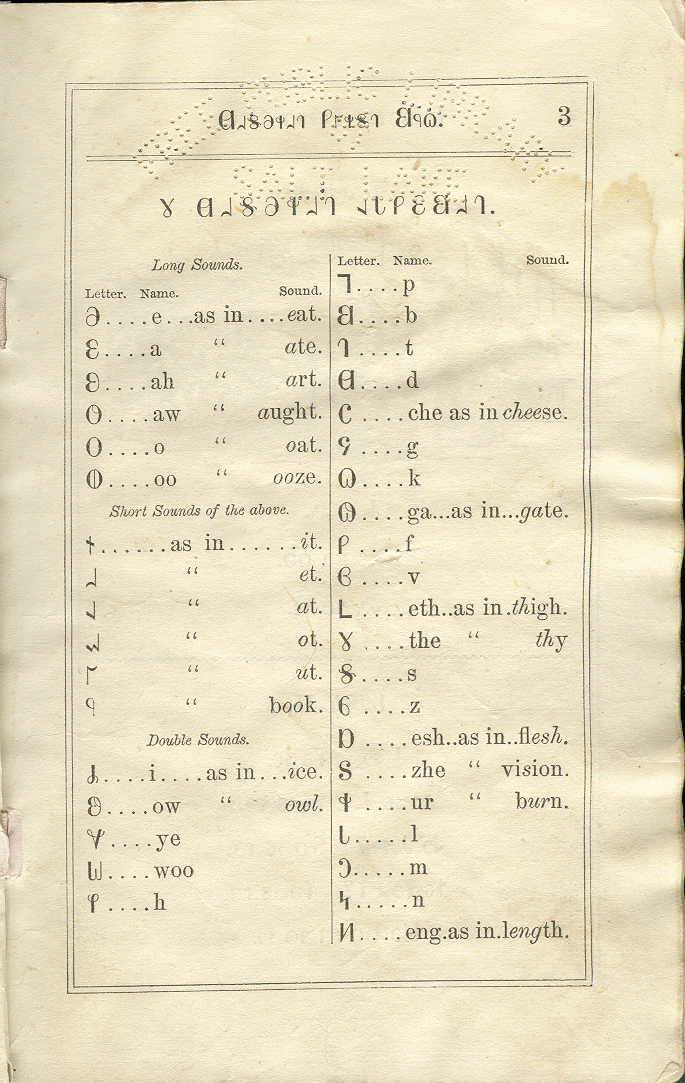 𐐔𐐯𐑅𐐨𐑉𐐯𐐻 𐐙𐐲𐑉𐑅𐐻 𐐒𐐳𐐿. 3
SALT LAKE
𐐜 𐐔𐐯𐑅𐐨𐑉𐐯𐐻 𐐈𐑊𐑁𐐩𐐺𐐯𐐻.
Long Sounds.
Letter. Name. Sound.
𐐀....e...as in....eat.
𐐁....a “ ate.
𐐂....ah “ art.
𐐃....aw “ aught.
𐐄....o “ oat.
𐐅....oo “ ooze.
Short Sounds of the above.
𐐆.......as in.......it.
𐐇 “ et.
𐐈 “ at.
𐐉 “ ot.
𐐊 “ ut.
𐐋 “ book.
Double Sounds.
𐐌....i....as in...ice.
𐐍....ow “ owl.
𐐎....ye
𐐏....woo
𐐐....h
Letter. Name. Sound.
𐐑....p
𐐒....b
𐐓....t
𐐔....d
𐐕....che as in cheese.
𐐖....g
𐐗....k
𐐘....ga...as in...gate.
𐐙....f
𐐚....v
𐐛....eth..as in.thigh.
𐐜....the “ thy
𐐝....s
𐐞....z
𐐟....esh..as in..flesh.
𐐠....zhe “ vision.
𐐡....ur “ burn.
𐐢.....l
𐐣.....m
𐐤.....n
𐐥....eng.as in.length.